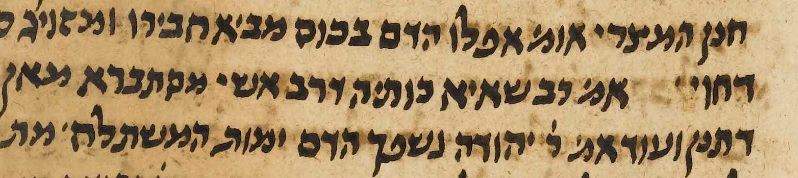 חנן המצרי אומ׳ אפלו הדם בכוס מביא חבירו ומזויג
דחוי אמ׳ רב שאיא כותיה דרב אשי מסתברא
דתנן ועוד אמ׳ ר׳ יהודה נשפך הדם ימות המשתלח׳ מת